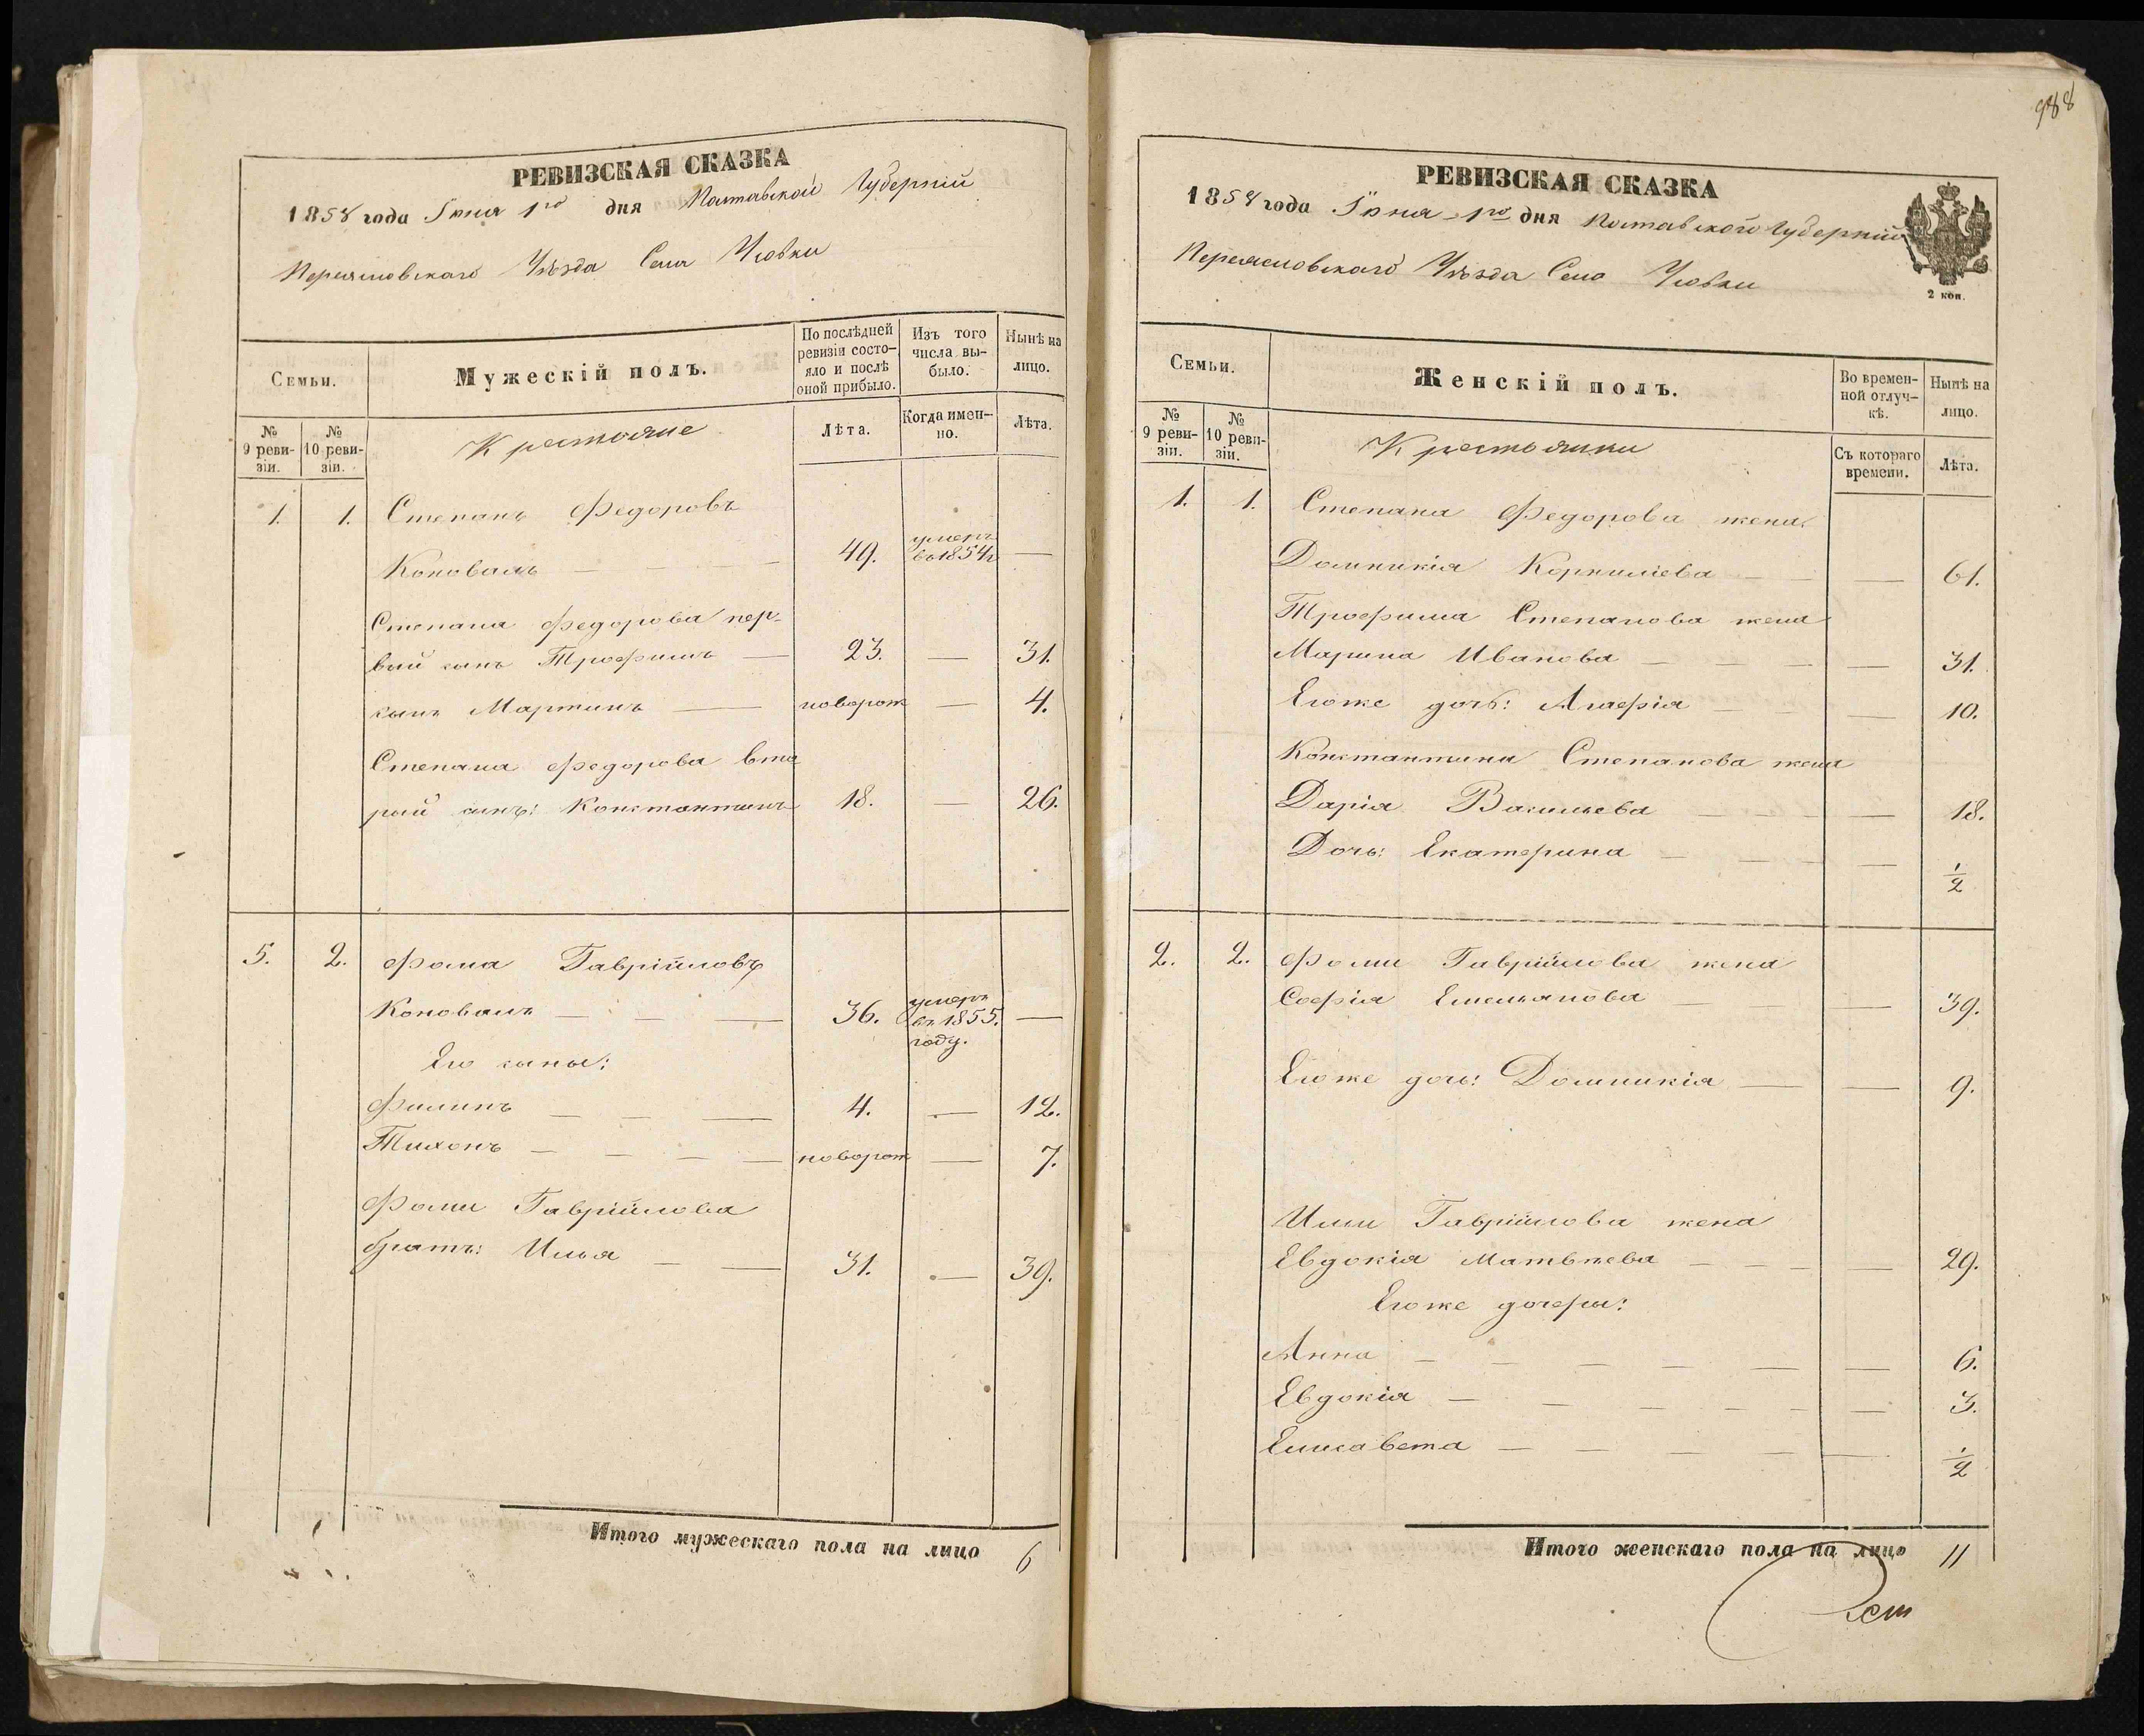 РЕВИЗСКАЯ СКАЗКА
1858 года Іюня 1го дня Полтавской Губерніи
Переясловскаго Уѣзда Села
Семьи.
Мужескій полъ.
По послѣдней ревизіи состояло и послѣ оной прибыло.
Изъ того числа выбыло.
Нынѣ на лицо.
№ 9 ревизіи.
№ 10 ревизіи.
Крестьяне
Лѣта.
Когда именно.
Лѣта.
1. 1. Степанъ Федоровъ
Коновалъ — — — 49. умеръ въ 1854г —
Степана Федорова пер-
вый сынъ Трофимъ — 23. — 31.
сынъ Мартинъ — новорож — 4.
Степана Федорова вто
рый сынъ: Константинъ 18. — 26.
5. 2. Фома Гавріиловъ
Коновалъ — — — 36. умеръ въ 1855. году. —
Его сыны:
Филипъ — — — 4. — 12.
Тихонъ — — — — новорож — 7.
Фомы Гавріилова
братъ: Илья — — 31. — 39.
Итого мужескаго пола на лицо 6
988
РЕВИЗСКАЯ СКАЗКА
1858 года Іюня 1го дня Полтавской Губерніи
Переясловскаго Уѣзда Села
2 коп.
Семьи.
Женскій полъ.
Во временной отлучкѣ.
Нынѣ на лицо.
№ 9 ревизіи.
№ 10 ревизіи.
Крестьянки
Съ котораго времени.
Лѣта.
1. 1. Степана Федорова жена
Домникія Корниліева — — — 61.
Трофима Степанова жена
Марина Иванова — — — — 31.
Егоже дочь: Агафія — — — 10.
Константина Степанова жена
Дарія Васильева — — — — 18.
Дочь: Екатерина — — — — 1/2
2. 2. Фомы Гавріилова жена
Софія Емельянова — — 39.
Егоже дочь: Домникія — — 9.
Ильи Гавріилова жена
Евдокія Матвѣева — — — — 29.
Егоже дочеры:
Анна — — — — — — 6.
Евдокія — — — — — — 3.
Елисавета — — — — — 1/2
Итого женскаго пола на лицо 11